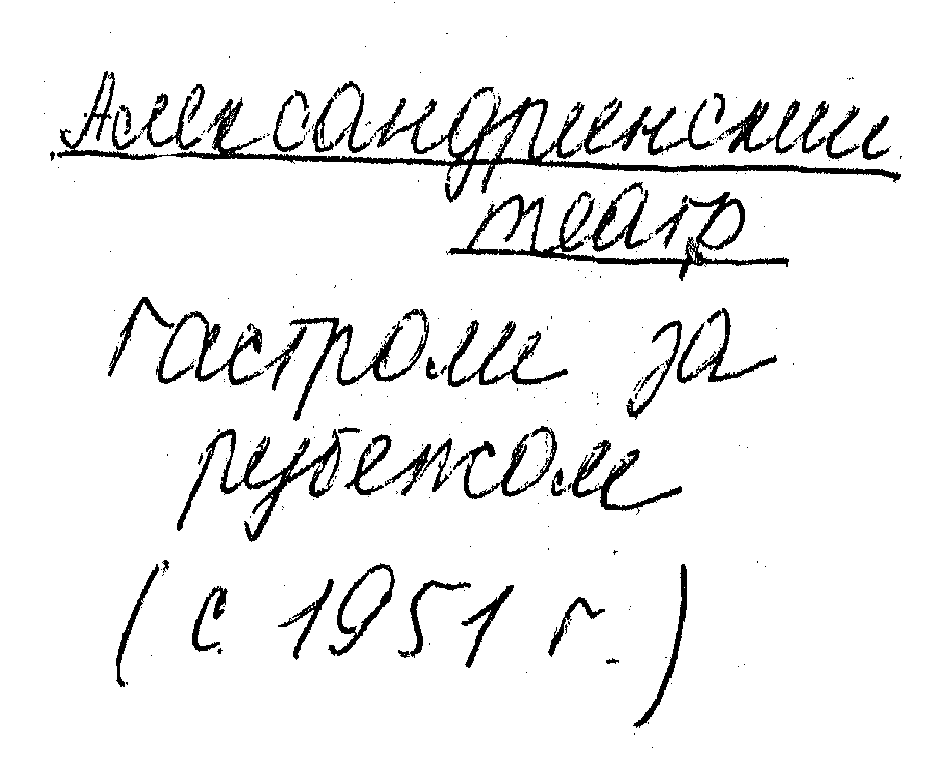 Александринский
театр
гастроли за
рубежом
(с 1951 г.)